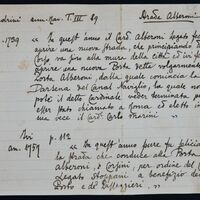 drini ann. Rav. T. III 89 Strada Alberoni
1739 « In quest'anno il Card. Alberoni legato fece
aprire una nuova strada, che principiando dal
Corso va fino alle mura della città ed ivi fece
aprire una nuova Porta detta volgarmente
Porta Alberoni dalla quale comincia la
Darsena del Canal Naviglio, la qual non
poté il detto Cardinale veder terminata, per
esser stato richiamato a Roma ed eletto in
sua vece il Card. Carlo Marini »
Ivi p. 112
an. 1757 « In quest'anno pure fu selciata
la strada che conduce alla Porta
Alberoni, o Corsini, per ordine del
Legato Stoppani a benefizio del
Porto e de' Passeggieri. »